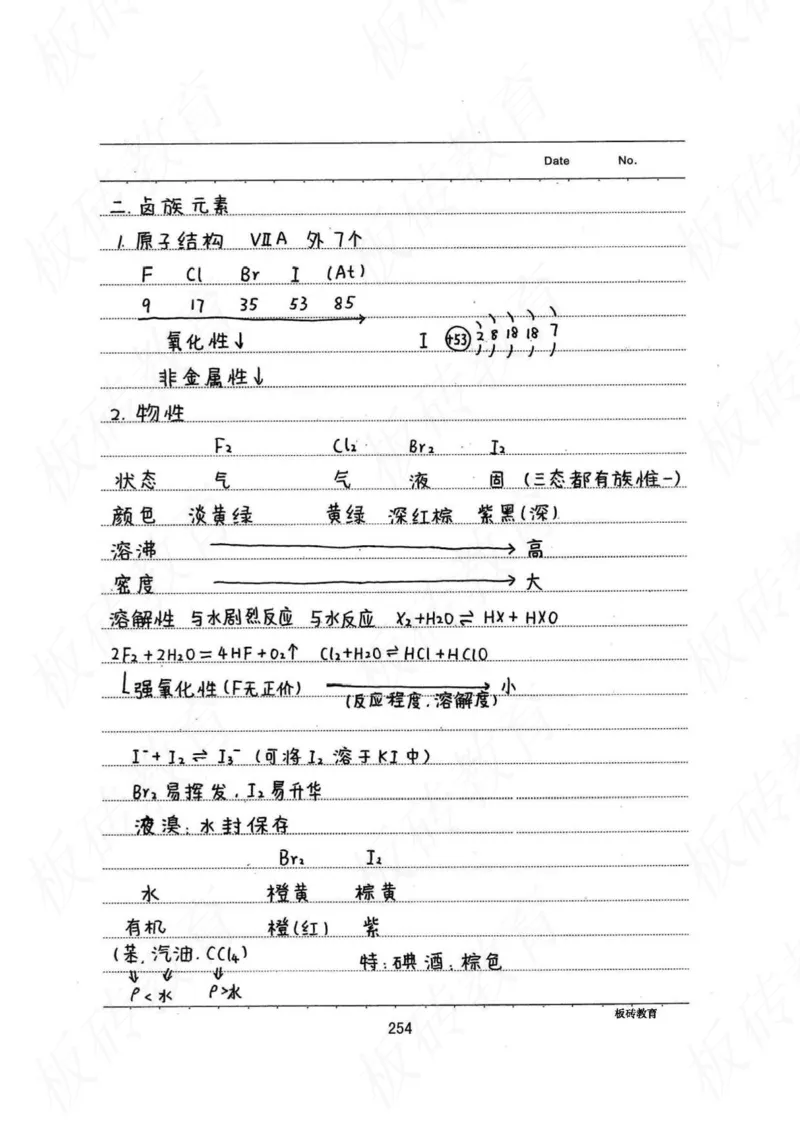 Date No.
二. 卤族元素
1. 原子结构 ⅦA 外7个
F Cl Br I (At)
9 17 35 53 85
氧化性↓ I +53 2 8 18 18 7
非金属性↓
2. 物性
F₂ Cl₂ Br₂ I₂
状态 气 气 液 固 (三态都有族惟一)
颜色 淡黄绿 黄绿 深红棕 紫黑(深)
溶沸 → 高
密度 → 大
溶解性 与水剧烈反应 与水反应 X₂+H₂O⇌HX+HXO
2F₂+2H₂O=4HF+O₂↑ Cl₂+H₂O⇌HCl+HClO
强氧化性(F无正价) → 小
(反应程度.溶解度)
I⁻+I₂⇌I₃⁻ (可将I₂溶于KI中)
Br₂易挥发, I₂易升华
液溴: 水封保存
Br₂ I₂
水 橙黄 棕黄
有机 橙(红) 紫
(苯.汽油.CCl₄) 特: 碘酒: 棕色
↓ ↓ ↓
ρ<水 ρ>水
板砖教育
254